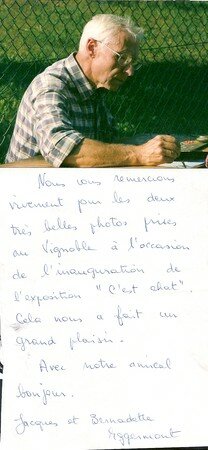 Nous vous remercions
vivement pour les deux
très belles photos prises
au Vignoble à l'occasion
de l'inauguration de
l'exposition "C'est chat".
Cela nous a fait un
grand plaisir.
Avec notre amical
bonjour.
Jacques et Bernadette
Eggermont